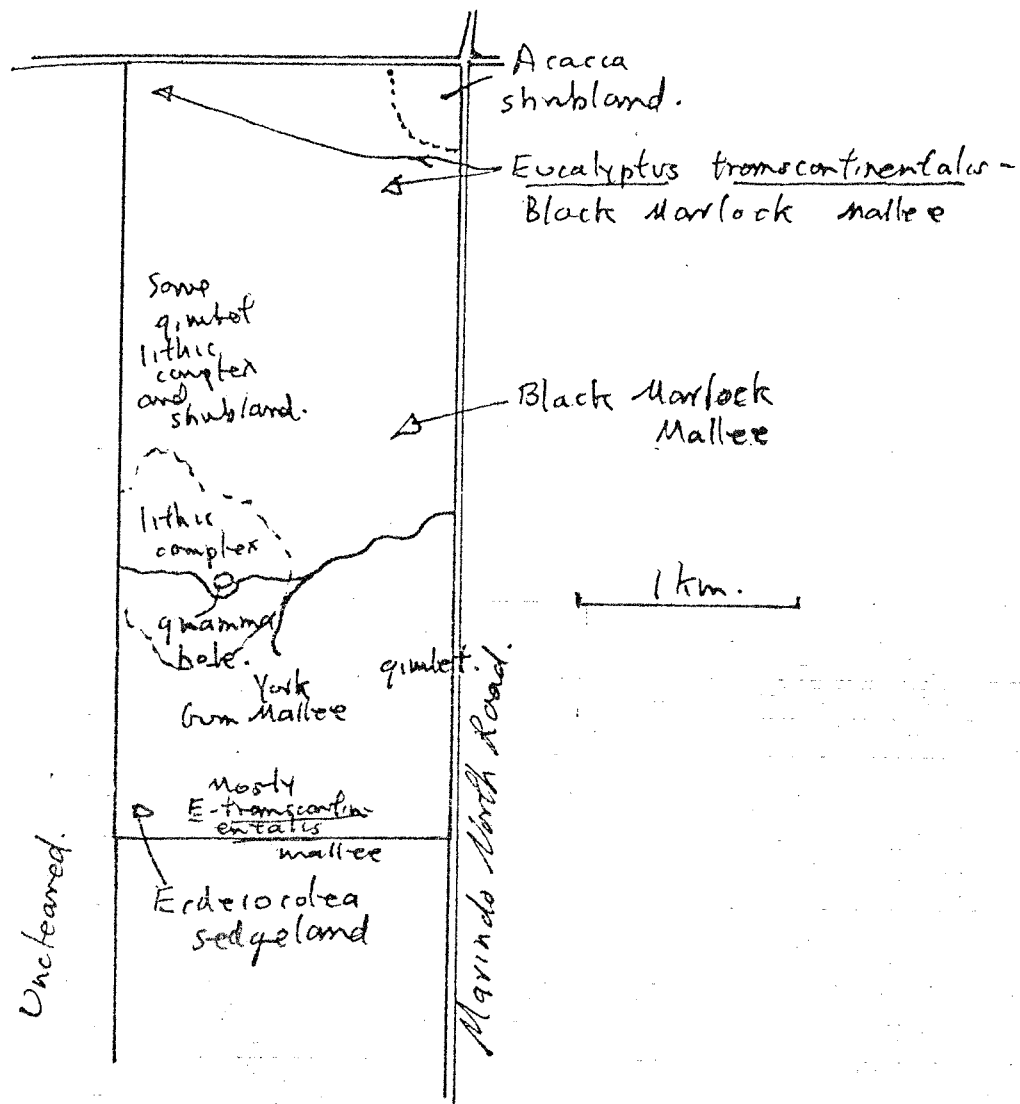 Acacca
shrubland.
Eucalyptus transcontinentalis -
Black Marlock Mallee
Some
gimlet
lithic
complex
and
shrubland.
Black Marlock
Mallee
lithic
complex
1 km.
gnamma
hole.
gimlet.
York
Gum Mallee
Mostly
E. transcontin-
entalis
mallee
Ecdeiocolea
sedgeland
Uncleared.
Marindo North Road.